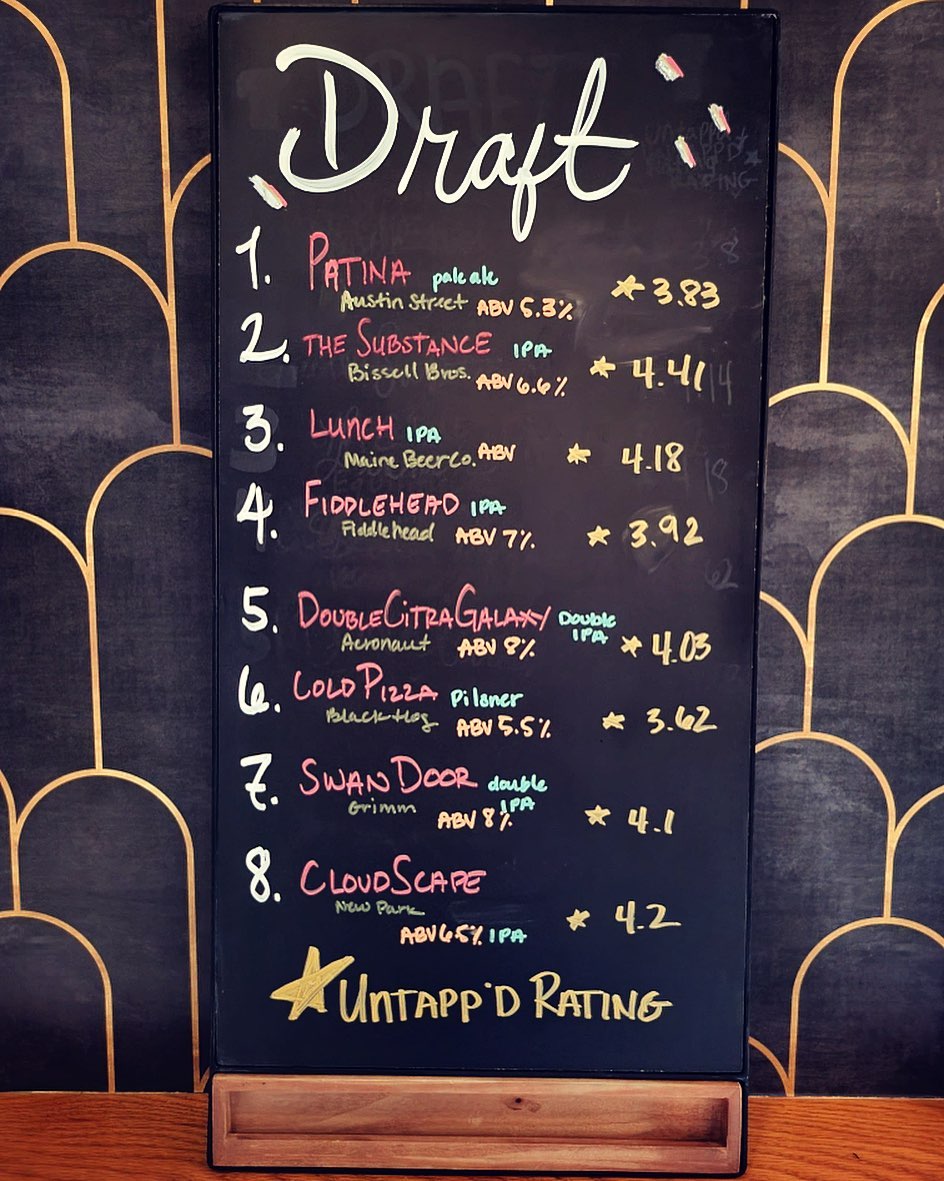 Draft
1. PATINA pale ale
Austin Street ABV 5.3% ★ 3.83
2. THE SUBSTANCE IPA
Bissell Bros. ABV 6.6% ★ 4.41
3. LUNCH IPA
Maine Beer Co. ABV ★ 4.18
4. FIDDLEHEAD IPA
Fiddlehead ABV 7% ★ 3.92
5. DOUBLECITRAGALAXY Double IPA
Aeronaut ABV 8% ★ 4.03
6. COLD PIZZA Pilsner
Black Hog ABV 5.5% ★ 3.62
7. SWAN DOOR double IPA
Grimm ABV 8% ★ 4.1
8. CLOUDSCAPE
New Park
ABV 6.5% IPA ★ 4.2
★ UNTAPP'D RATING